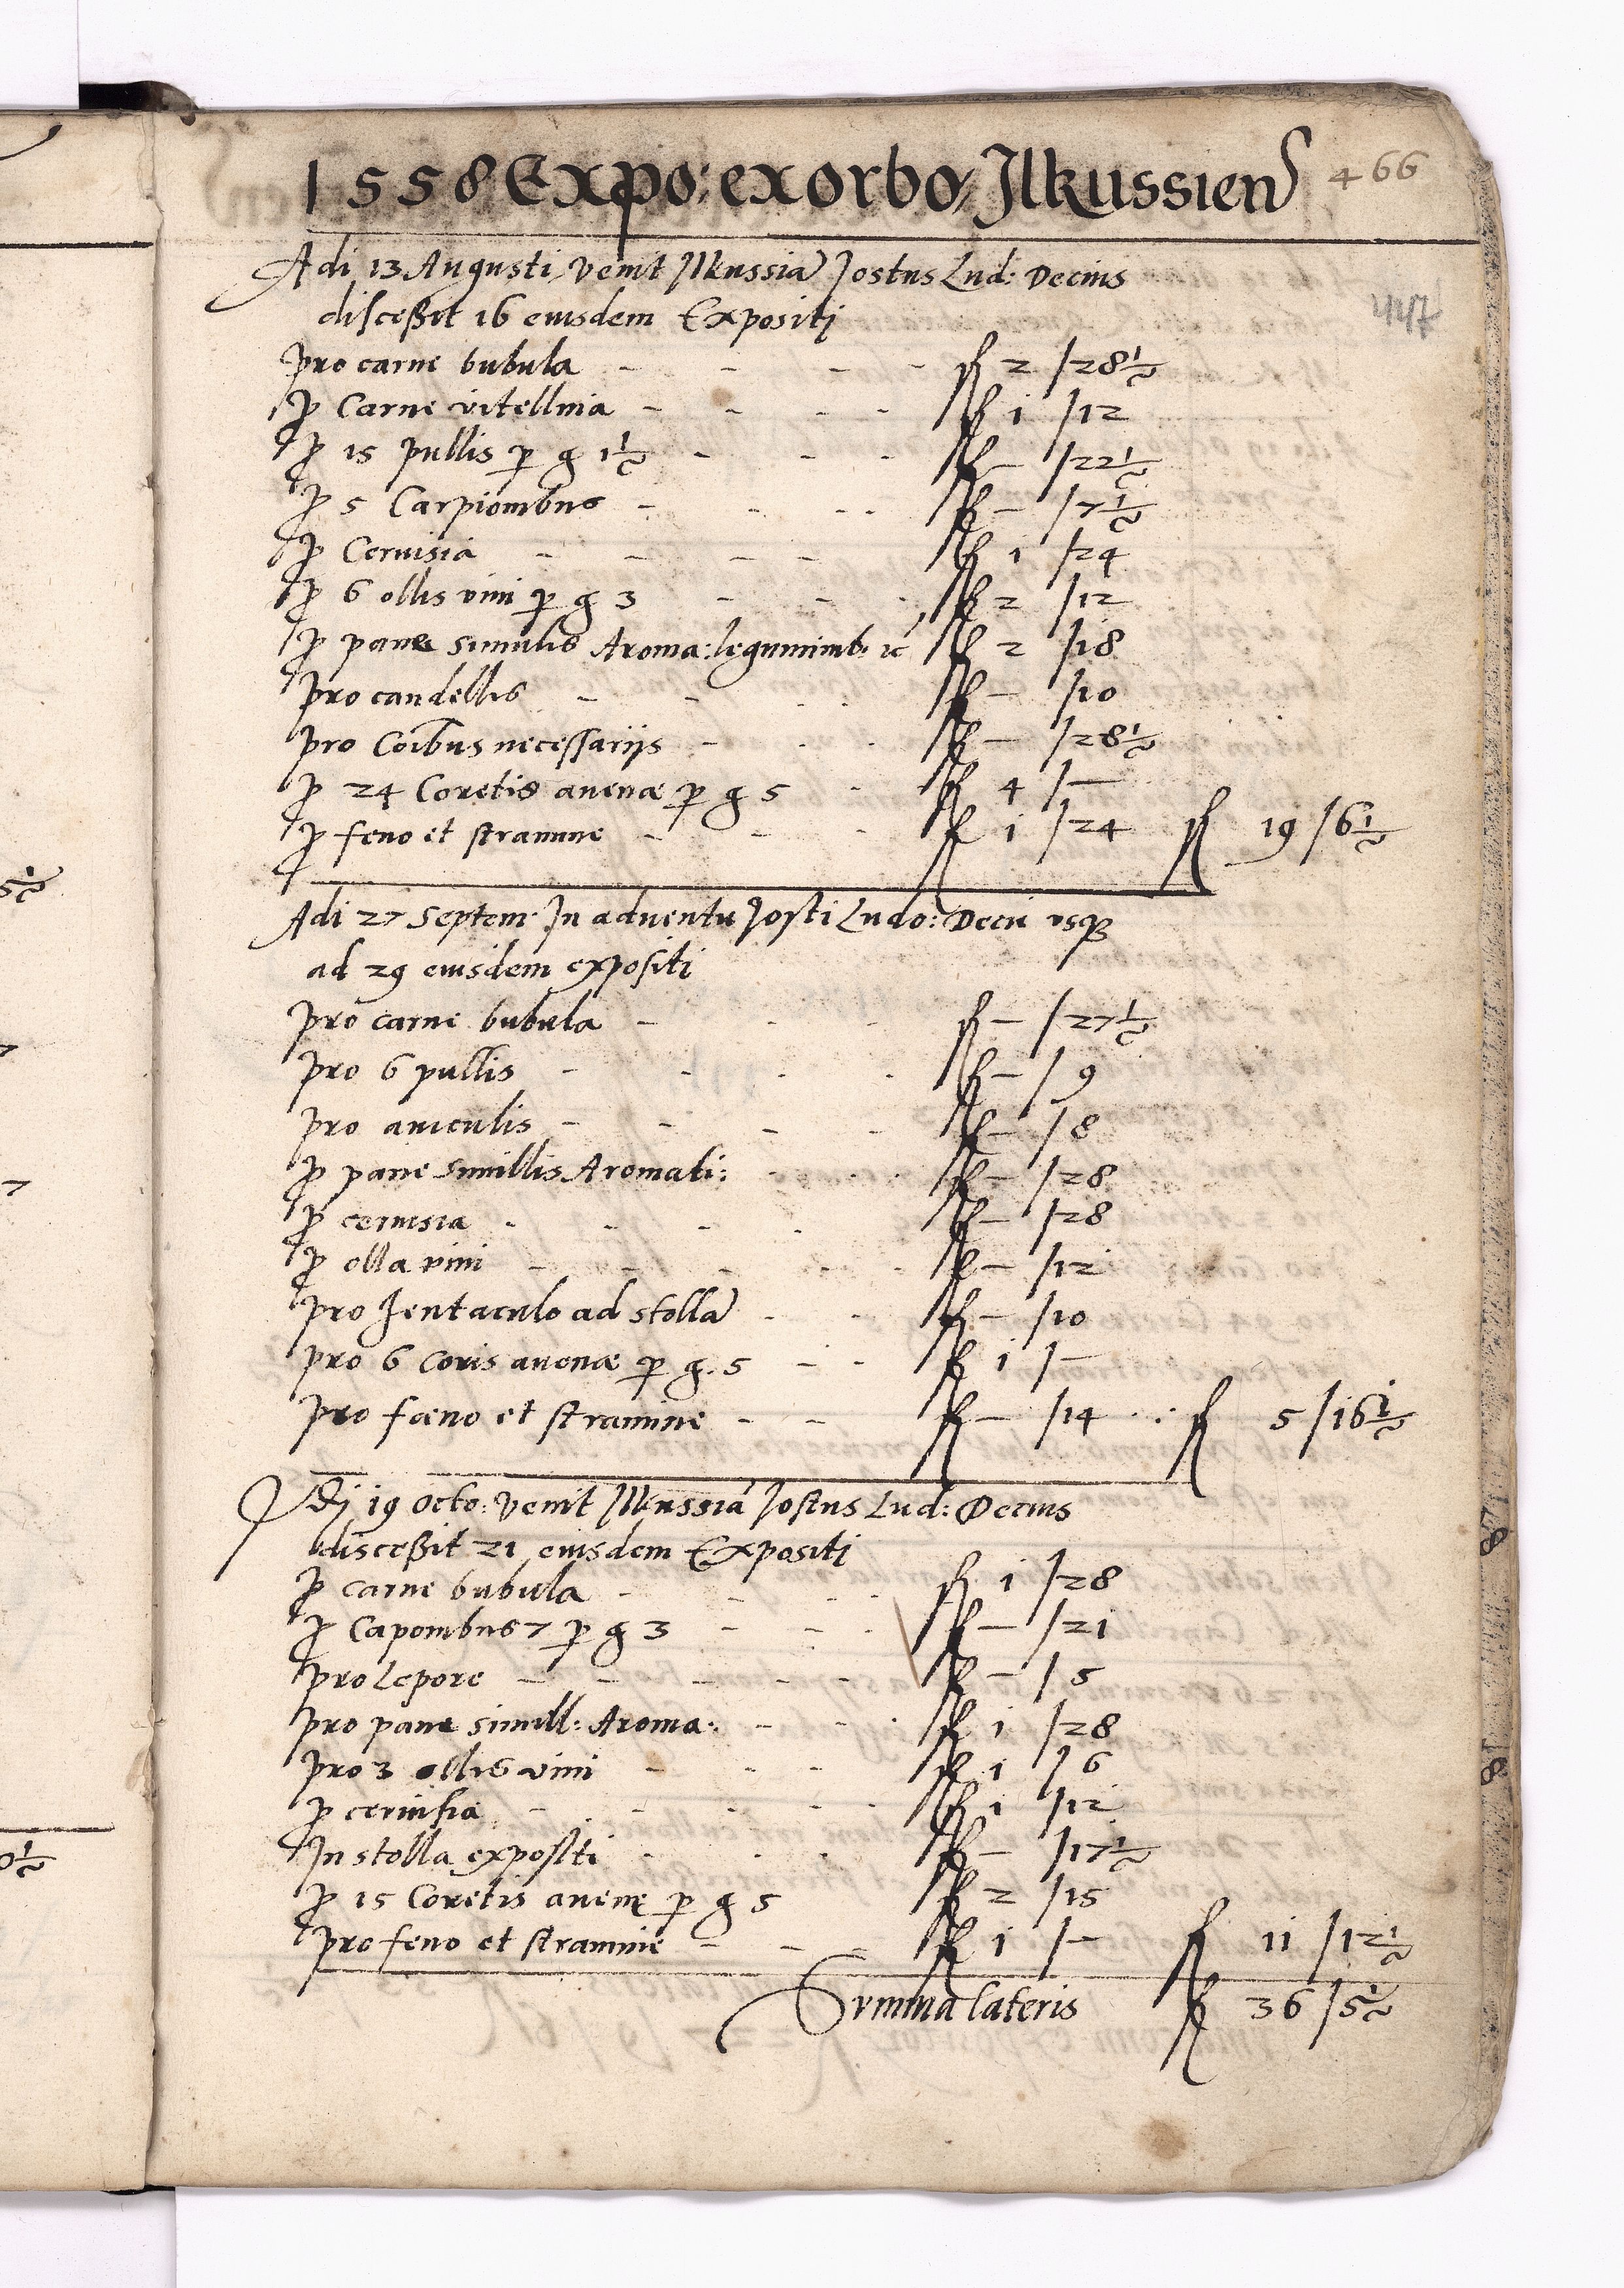 1558 Expo: ex orbo Ilkussien 466
447
Adi 13 Augusti venit Ilkussia Jostus Lud: Decius
disceßit 16 eiusdem Expositi
pro carne bubula - - - - fl 2 /28½
p Carne vitellina - - - - fl 1 /12
p 15 pullis p g 1½ - - - fl - /22½
p 5 Carpionibus - - - - fl - /7½
p Cervisia - - - - fl 1 /24
p 6 ollis vini p g 3 - - - fl 2 /12
p pane simulis Aroma: leguminib: ic fl 2 /18
pro candellis - - - - fl - /10
pro Coibus necessarijs - - - fl - /28½
p 24 Coretis avenæ p g 5 - fl 4 /-
p feno et stramine - - - fl 1 /24 fl 19 /6½
Adi 27 Septem: In adventu Josti Ludo: Decii usq
ad 29 eiusdem expositi
pro carne bubula - - - fl - /27½
pro 6 pullis - - - - fl - /9
pro aviculis - - - - fl - /8
p pane simillis Aromati: - - - fl - /28
p cervisia - - - - fl - /28
p olla vini - - - - - fl - /12
pro Jentaculo ad stolla - - fl - /10
pro 6 coris avenæ p g. 5 - - fl 1 /-
pro fœno et stramine - - fl - /14 fl 5 /16½
Adj 19 Octo: venit Ilkussia Jostus Lud: Decius
disceßit 21 eiusdem Expositi
p carne bubula - - - - fl 1 /28
p Caponibus 7 p g 3 - - - fl - /21
pro Lepore - - - - - fl - /5
pro pane simill: Aroma: - - - fl 1 /28
pro 3 ollis vini - - - fl 1 /6
p cervisia - - - - - fl 1 /12
In stolla expositi - - - fl - /17½
p 15 Coretis avenę p g 5 fl 2 /15
pro feno et stramine - - - fl 1 /- fl 11 /12½
Summa lateris fl 36 /5½